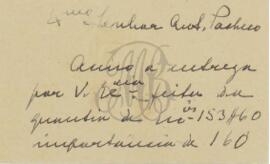 Senhor Ant. Pacheco
Anno a entrega
por V. feita da
quantia de 153#60
importancia de 160